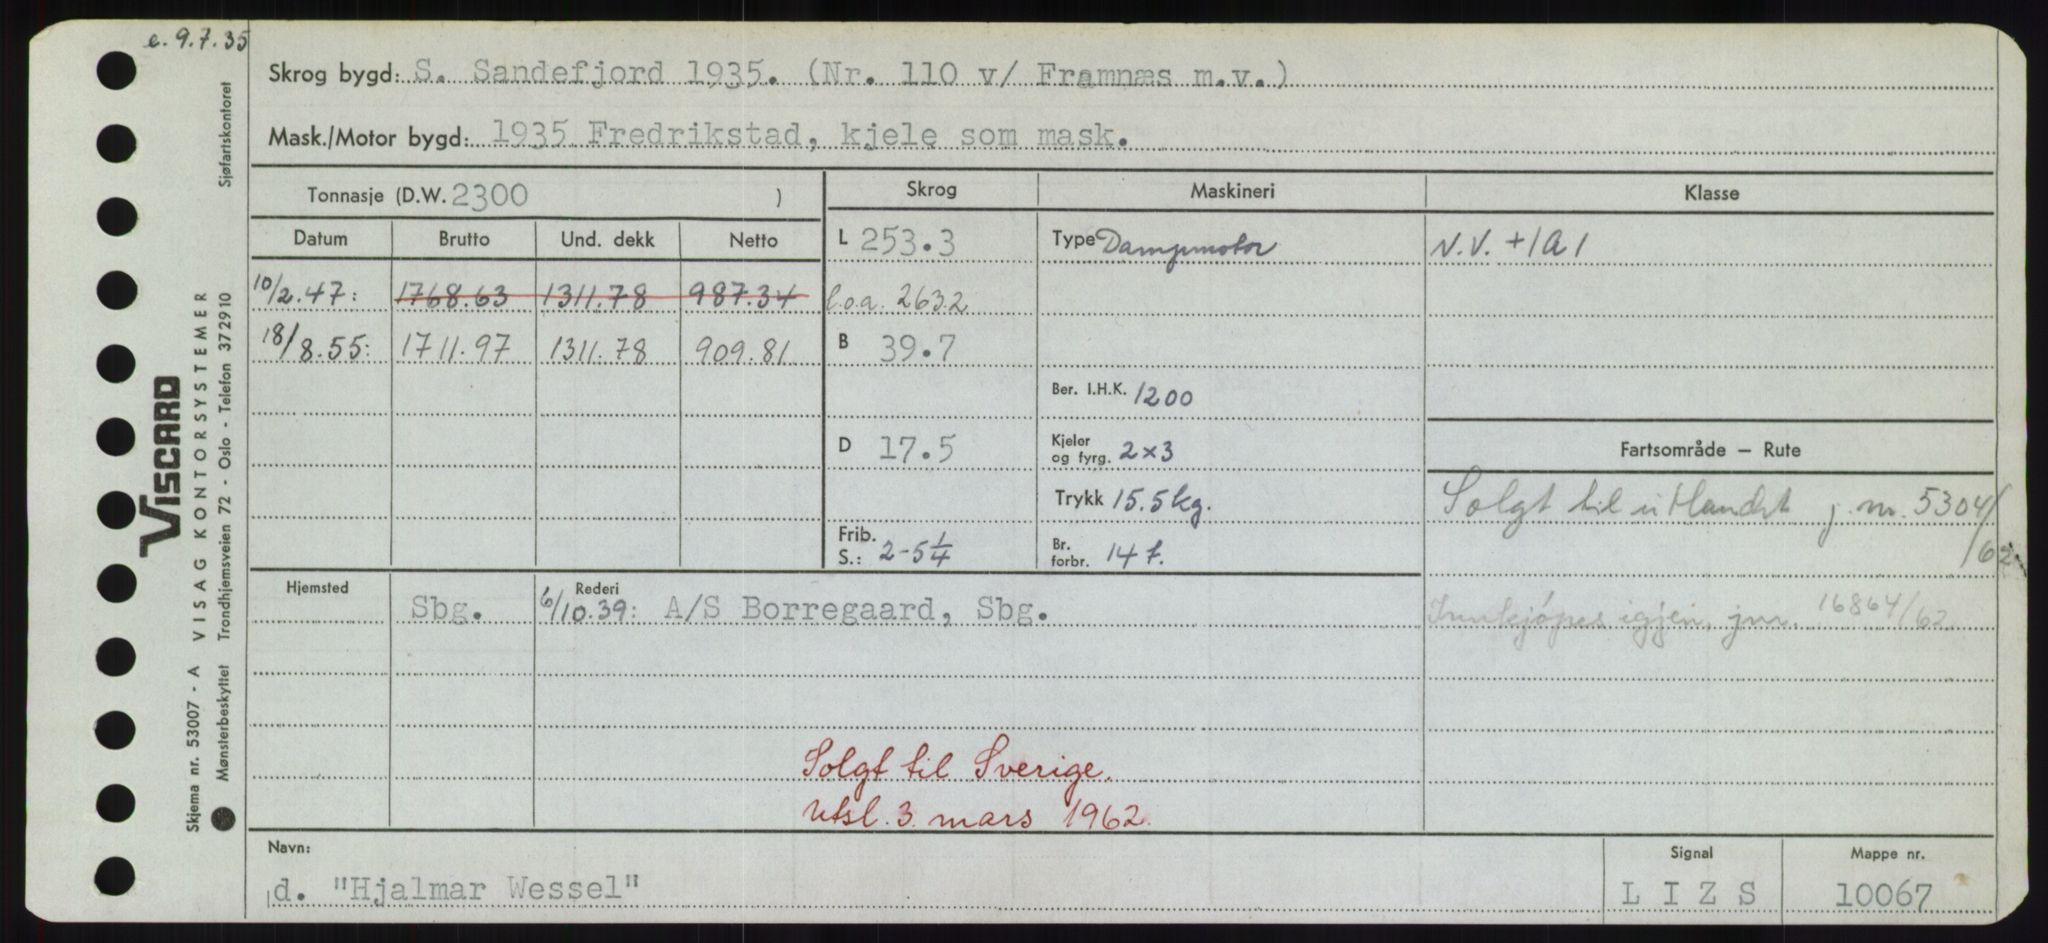 e. 9.7.35
Skrog bygd: S. Sandefjord 1935. (Nr. 110 v/ Framnæs m.v.)
Mask./Motor bygd: 1935 Fredrikstad, kjele som mask.
Tonnasje (D.W. 2300 )
Skrog Maskineri Klasse
Datum Brutto Und. dekk Netto
L 253.3 Type Dampmotor N.V. +1A1
10/2.47: 1768.63 1311.78 987.34 l.o.a. 263.2
18/8.55: 1711.97 1311.78 909.81 B 39.7
Ber. I.H.K. 1200
D 17.5 Kjeler og fyrg. 2x3 Fartsområde – Rute
Trykk 15.5 kg. Solgt til utlandet j. nr. 5304/
Frib. S.: 2-5 1/4 Br. forbr. 14 t. /62
Hjemsted Rederi
Sbg. 6/10.39: A/S Borregaard, Sbg. Innkjöpes igjen, jnr. 16864/62
Solgt til Sverige.
Utsl. 3. mars 1962.
Navn: Signal Mappe nr.
d. "Hjalmar Wessel" L I Z S 10067
VISCARD
Skjema nr. 53007 - A VISAG KONTORSYSTEMER
Mønsterbeskyttet Trondhjemsveien 72 - Oslo - Telefon 372910 Sjøfartskontoret